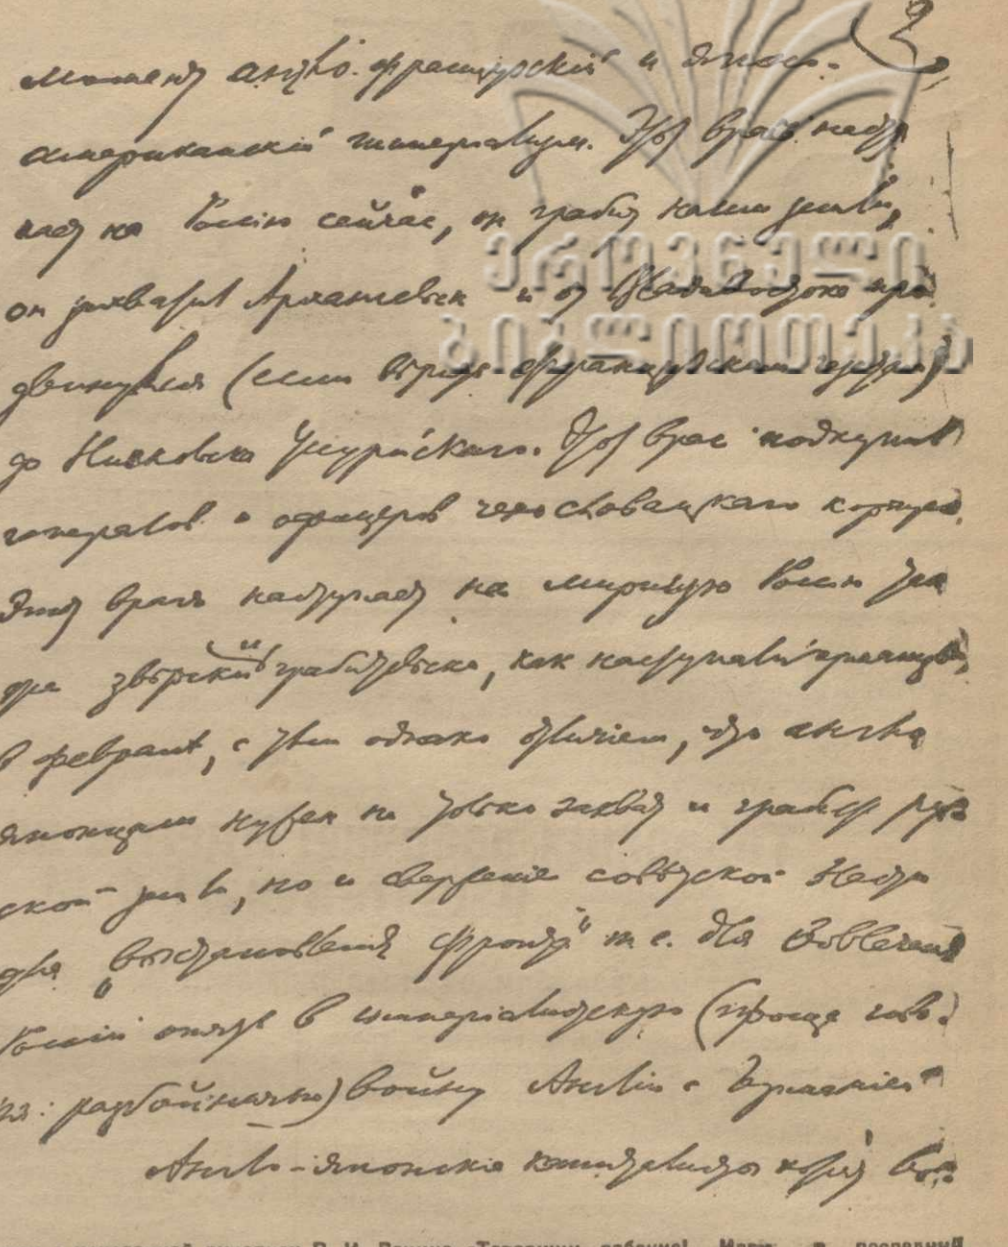 2
момент англо-французский и японо-
американскій имперіализм. Этот враг насту
пает на Россію сейчас, он грабит наши земли,
он захватил Архангельск и от Владивостока про
двинулся (если верить французским газетам)
до Никольска Уссурійскаго. Этот враг подкупил
генералов и офицеров чехословацкаго корпуса.
Этот враг наступает на мирную Россію так
же зверски и грабительски, как наступали германцы
в феврале, с тем однако отличіем, что англо
японцам нужен не только захват и грабеж рус
ской земли, но и сверженіе советской власти
для „возстановленія фронта" т. е. для вовлеченія
Россіи опять в имперіалистскую (проще гово
ря: разбойничью) войну Англіи с Германіей
Англо-японскіе капиталисты хотят
ეროვნული
ბიბლიოთეკა